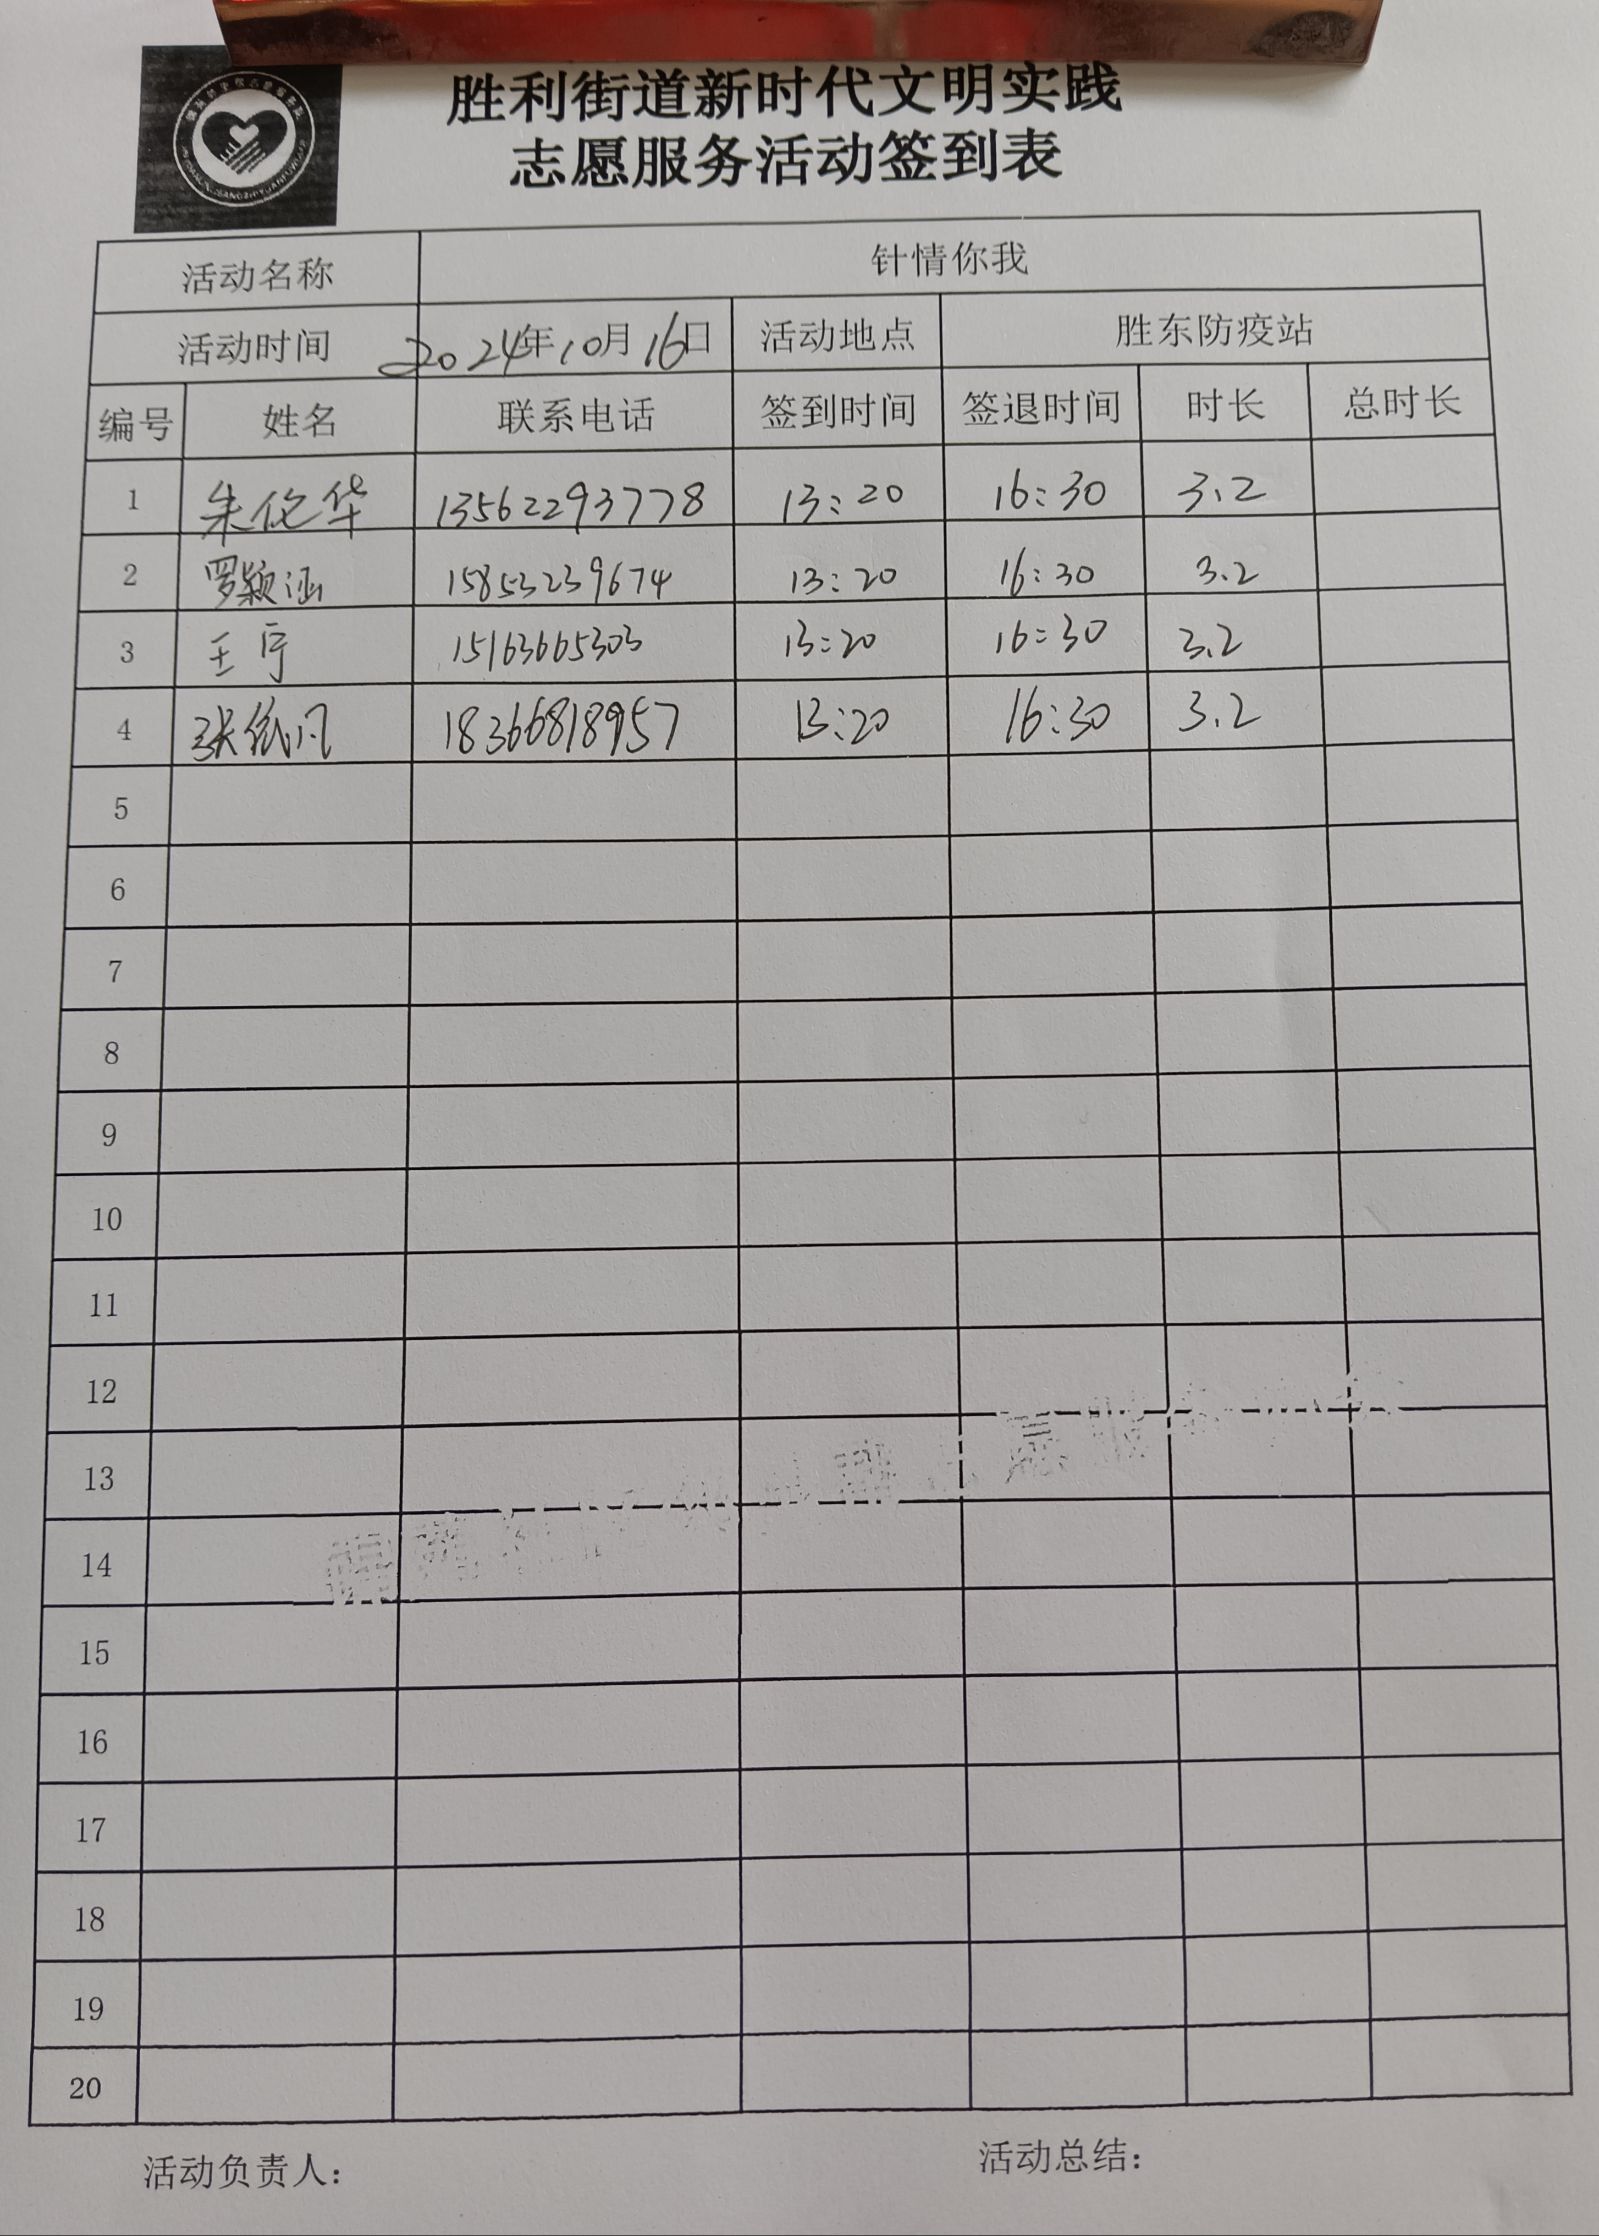 胜利街道新时代文明实践
志愿服务活动签到表
活动名称 针情你我
活动时间 2024年10月16日 活动地点 胜东防疫站
编号 姓名 联系电话 签到时间 签退时间 时长 总时长
1 朱伦华 13562293778 13:20 16:30 3.2
2 罗颖涵 15853239674 13:20 16:30 3.2
3 王宇 15163665303 13:20 16:30 3.2
4 张 18366818957 13:20 16:30 3.2
5
6
7
8
9
10
11
12
13
14
15
16
17
18
19
20
活动负责人： 活动总结：